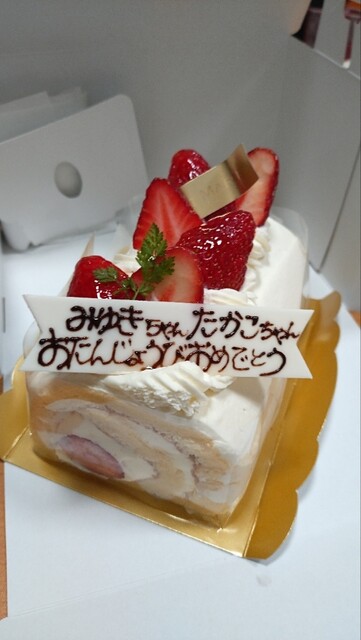 みゆきちゃんたかこちゃん
おたんじょうびおめでとう